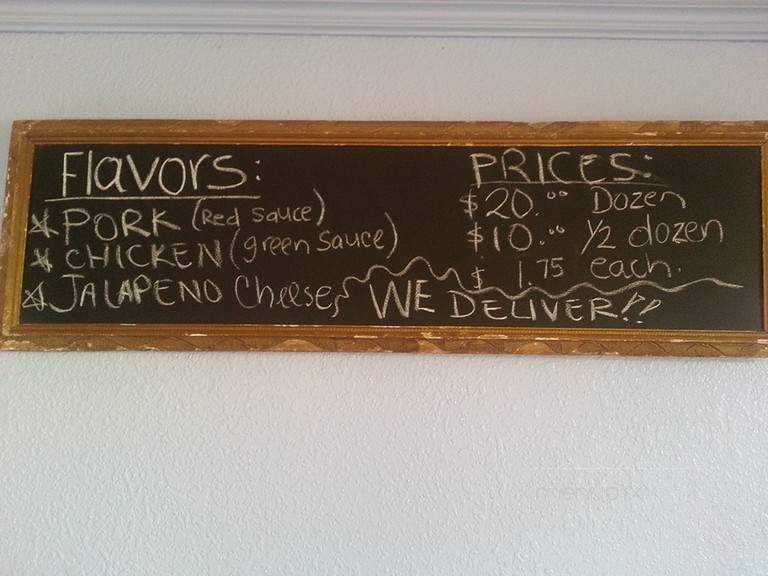 Flavors:
* PORK (Red sauce)
* CHICKEN (green Sauce)
* JALAPENO Cheese
PRICES:
$20.00 Dozen
$10.00 1/2 dozen
$ 1.75 each.
WE DELIVER!!
menupix